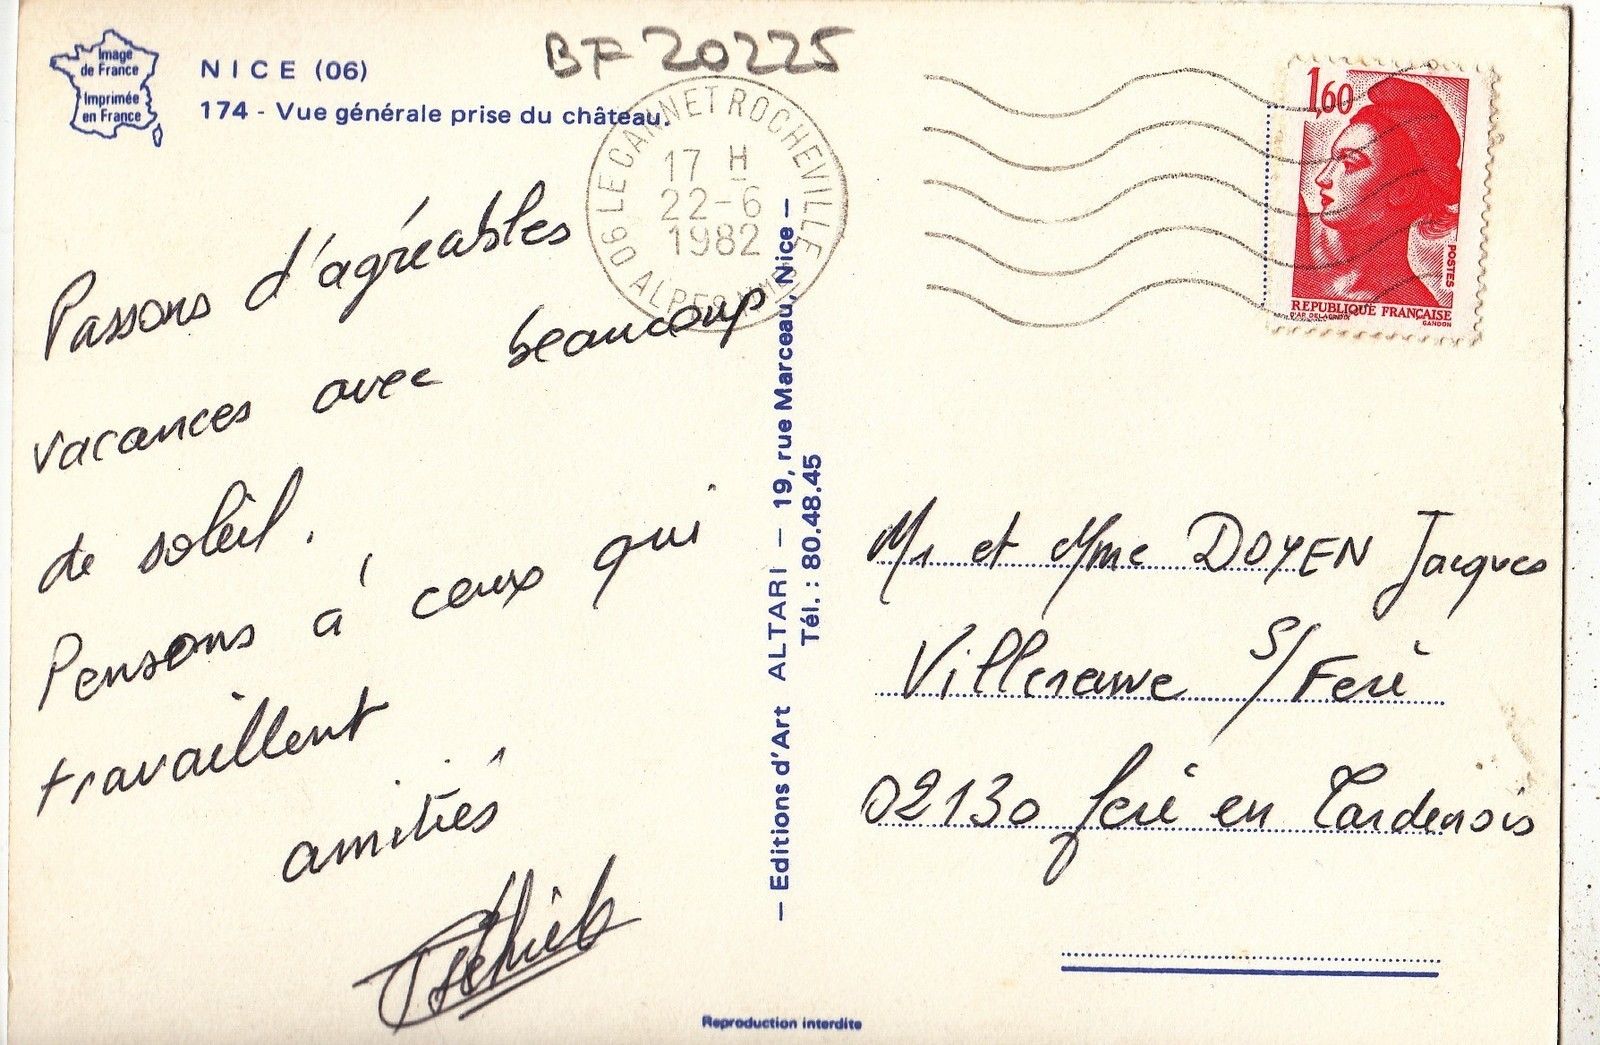 Image
de France
Imprimée
en France
NICE (06)
174 - Vue générale prise du château.
BF 20225
06 LE CANNET ROCHEVILLE
ALPES
17 H
22-6
1982
1,60
POSTES
REPUBLIQUE FRANÇAISE
D'AP. DELACROIX
GANDON
Passons d'agréables
vacances avec beaucoup
de soleil.
Pensons à ceux qui
travaillent
amitiés
— Editions d'Art ALTARI — 19, rue Marceau, Nice —
Tél. : 80.48.45
Mr et Mme DOYEN Jacques
Villeneuve S/ Feré
02130 feré en Tardenois
Reproduction interdite